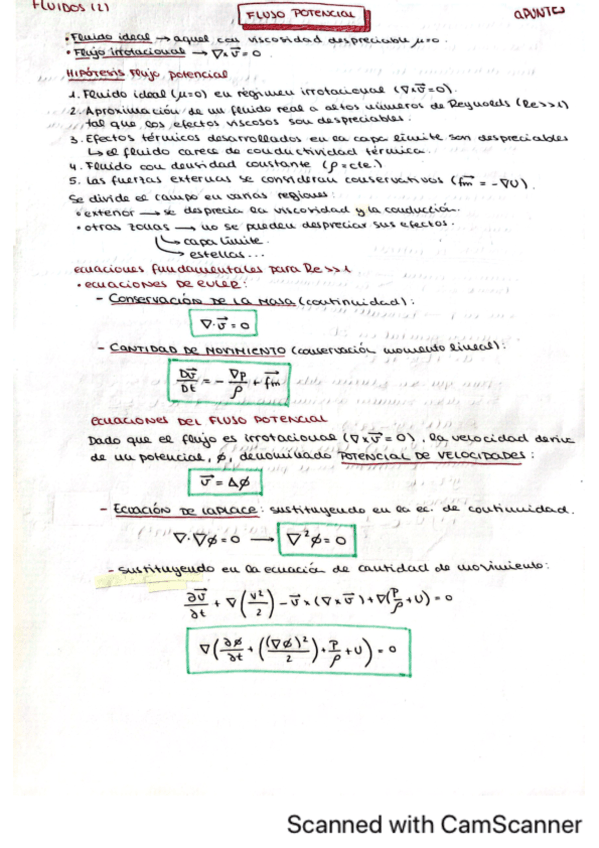 FLUIDOS (2)
FLUJO POTENCIAL
APUNTES
• Fluido ideal → aquel con viscosidad despreciable μ=0.
• Flujo irrotacional → ∇×v⃗ = 0.
HIPÓTESIS Flujo potencial
1. Fluido ideal (μ=0) en régimen irrotacional (∇×v⃗=0).
2. Aproximación de un fluido real a altos números de Reynolds (Re>>1)
tal que los efectos viscosos son despreciables.
3. Efectos térmicos desarrollados en la capa límite son despreciables
↳ el fluido carece de conductividad térmica.
4. Fluido con densidad constante (ρ=cte.)
5. Las fuerzas externas se consideran conservativas (f⃗m = -∇U).
Se divide el campo en varias regiones:
• exterior → se desprecia la viscosidad y la conducción.
• otras zonas → no se pueden despreciar sus efectos.
↳ capa límite.
↳ estellas...
ecuaciones fundamentales para Re>>1
• ecuaciones DE EULER:
- CONSERVACIÓN DE LA MASA (continuidad):
∇·v⃗ = 0
- CANTIDAD DE MOVIMIENTO (conservación momento lineal):
Dv⃗/Dt = - ∇p/ρ + f⃗m
ECUACIONES DEL FLUJO POTENCIAL
Dado que el flujo es irrotacional (∇×v⃗ = 0), la velocidad deriva
de un potencial, φ, denominado POTENCIAL DE VELOCIDADES:
v⃗ = Δφ
- ECUACIÓN DE LAPLACE: sustituyendo en la ec. de continuidad.
∇·∇φ = 0 → ∇²φ = 0
- Sustituyendo en la ecuación de cantidad de movimiento:
∂v⃗/∂t + ∇(v²/2) - v⃗×(∇×v⃗) + ∇(P/ρ + U) = 0
∇(∂φ/∂t + ((∇φ)²/2) + P/ρ + U) = 0
Scanned with CamScanner